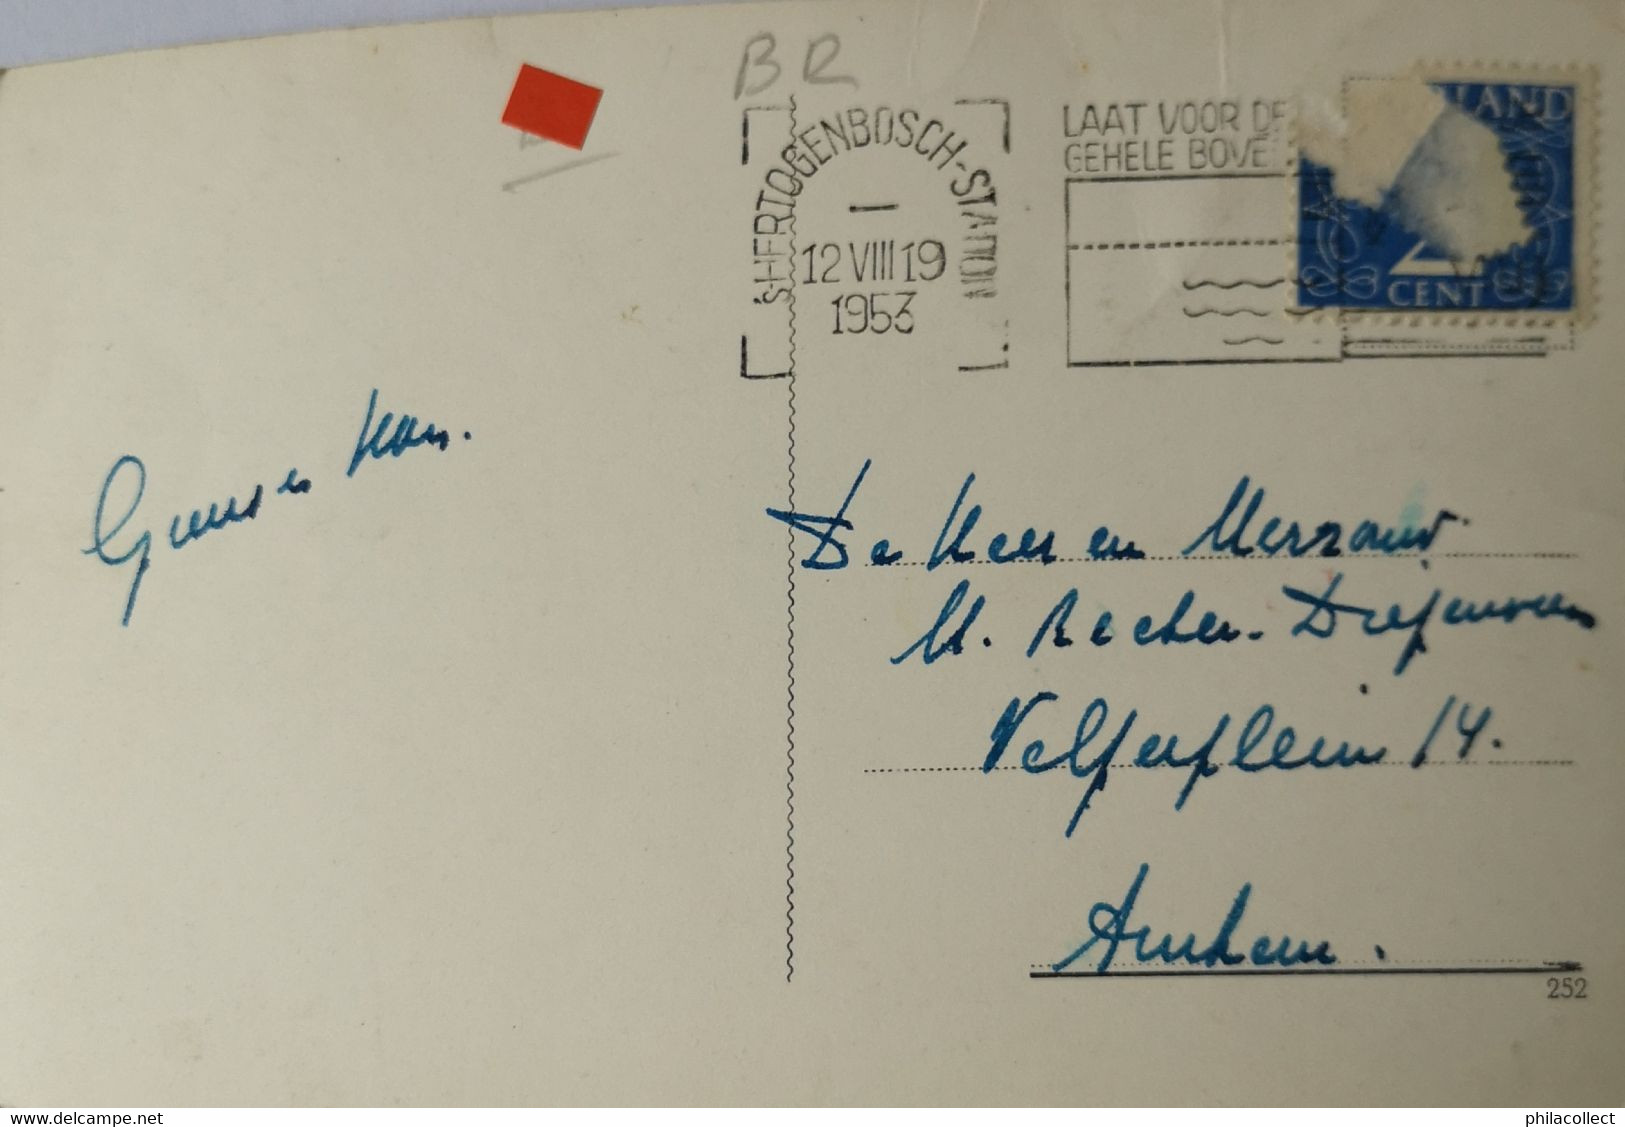 BR
'S-HERTOGENBOSCH-STATION
12 VIII 19
1953
LAAT VOOR DE
GEHELE BOVE
LAND
2
CENT
De Heer en Mevrouw
M. Becker-
Velperplein 14.
Arnhem.
252
philacollect
www.delcampe.net